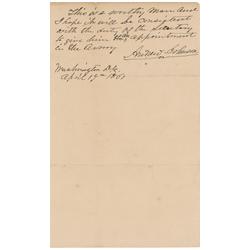 This is a worthy Man and
I hope it will be consistent
with the duty of the Secretary
to give him appointment
in the Army
Andrew Johnson
Washington D.C.
April 19th